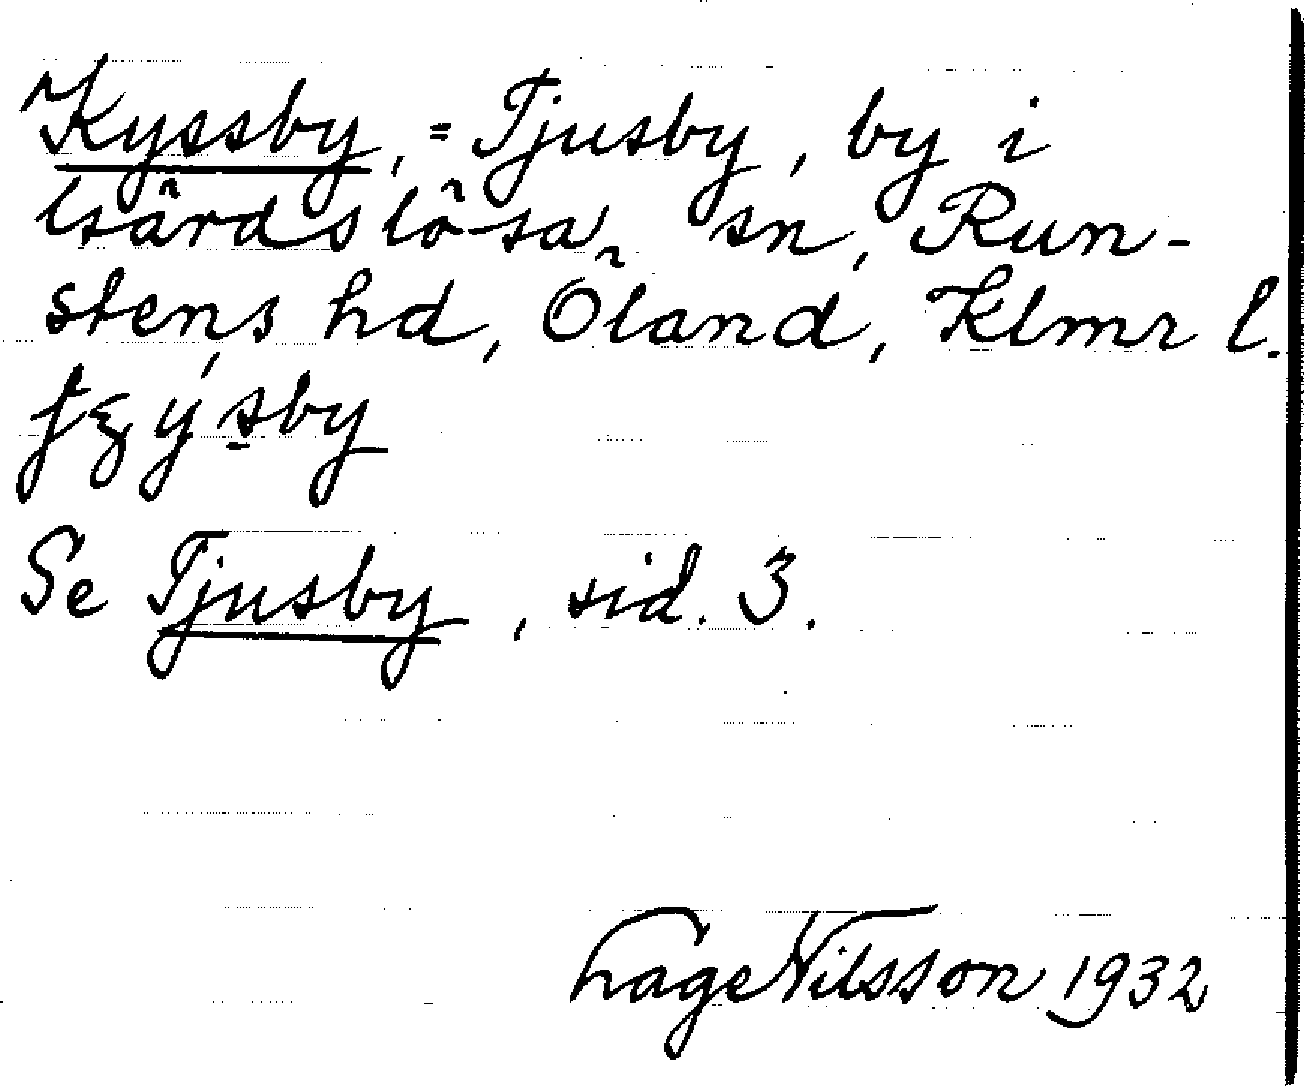 Kyssby, = Tjusby, by i
Gärdslösa sn, Run-
stens hd, Öland, Klmr l.
Se Tjusby, sid. 3.
Lage Nilsson 1932